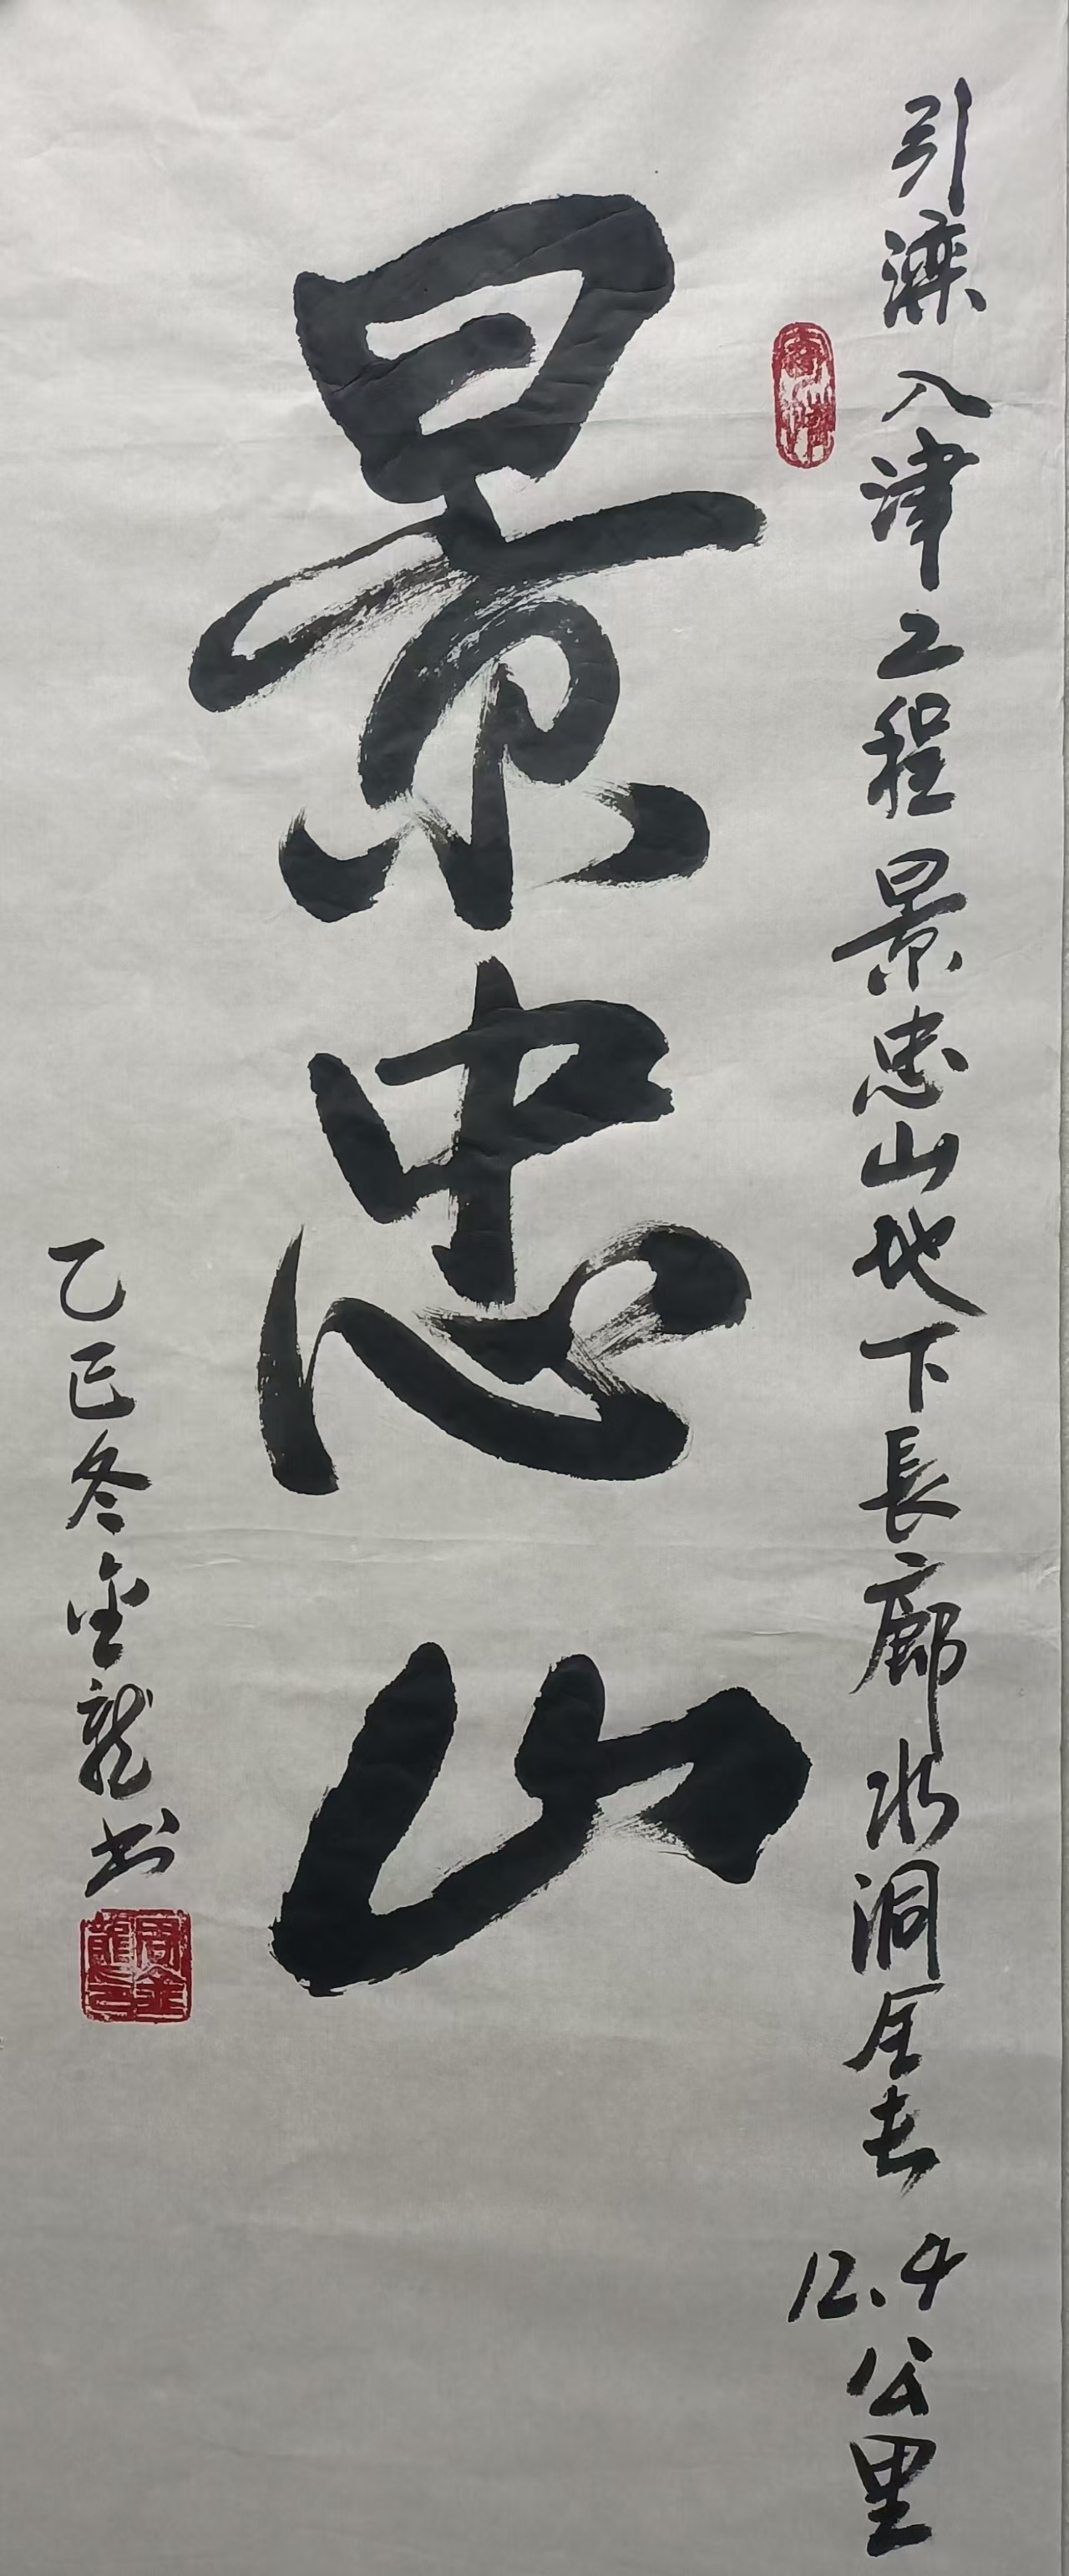 引滦入津工程景忠山地下長廊水洞全長12.4公里
景忠山
乙巳冬金龍书
周金龍印